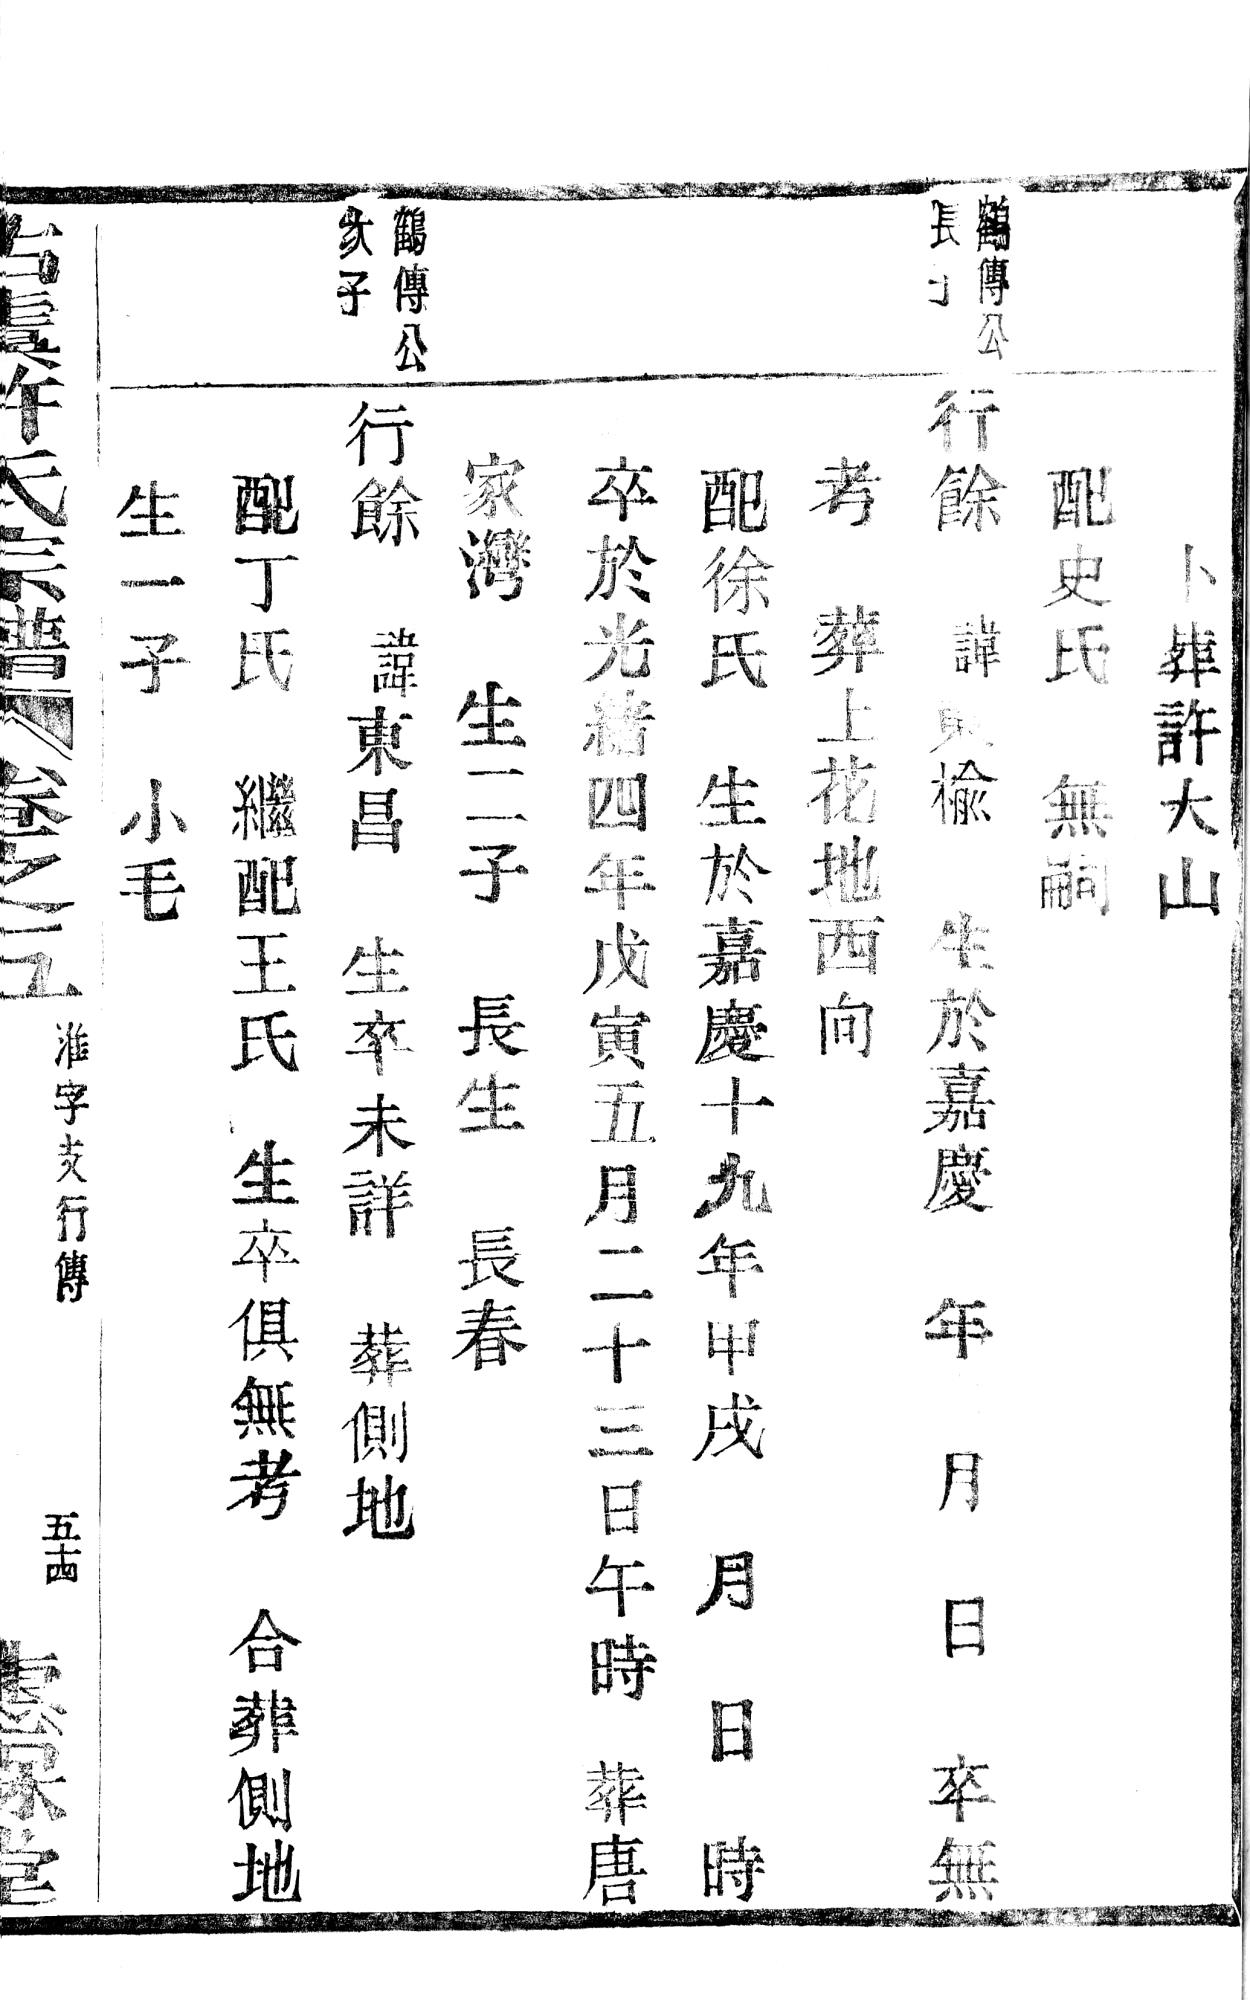 卜葬許大山
配史氏　無嗣
鶴傳公
長子
行餘　諱東榆　生於嘉慶　年　月　日　卒無
考　葬上花地西向
配徐氏　生於嘉慶十九年甲戌　月　日　時
卒於光緒四年戊寅五月二十三日午時　葬唐
家灣　生二子　長生　長春
鶴傳公
次子
行餘　諱東昌　生卒未詳　葬側地
配丁氏　繼配王氏　生卒俱無考　合葬側地
生一子　小毛
古虞許氏宗譜　卷之五　淮字支行傳　五十四　惠保堂